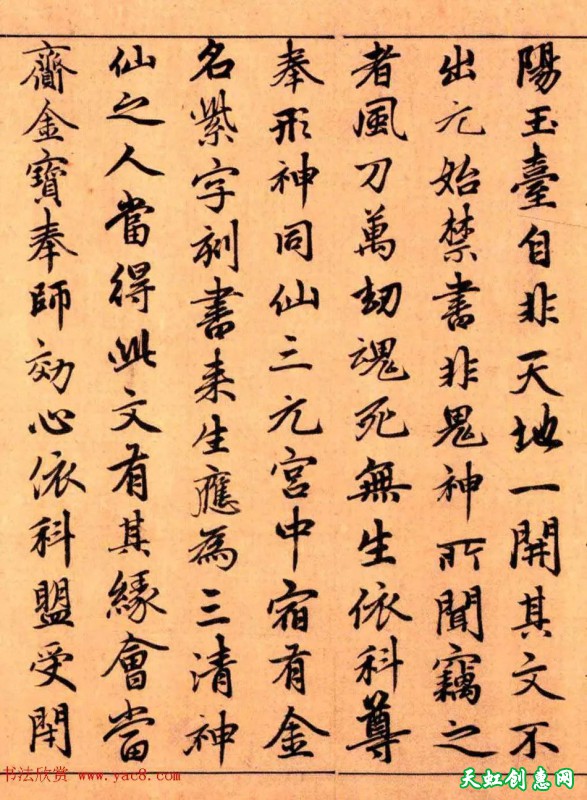 陽玉臺自非天地一開其文不
出元始禁書非鬼神所聞竊之
者風刀萬劫魂死無生依科尊
奉形神同仙三元宮中宿有金
名紫字刻書来生應為三清神
仙之人當得此文有其緣會當
齎金寶奉師効心依科盟受閇
书法欣赏 www.yac8.com
天虹创惠网